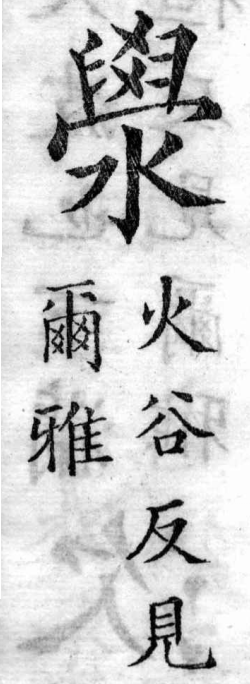 澩
火谷反見
爾雅